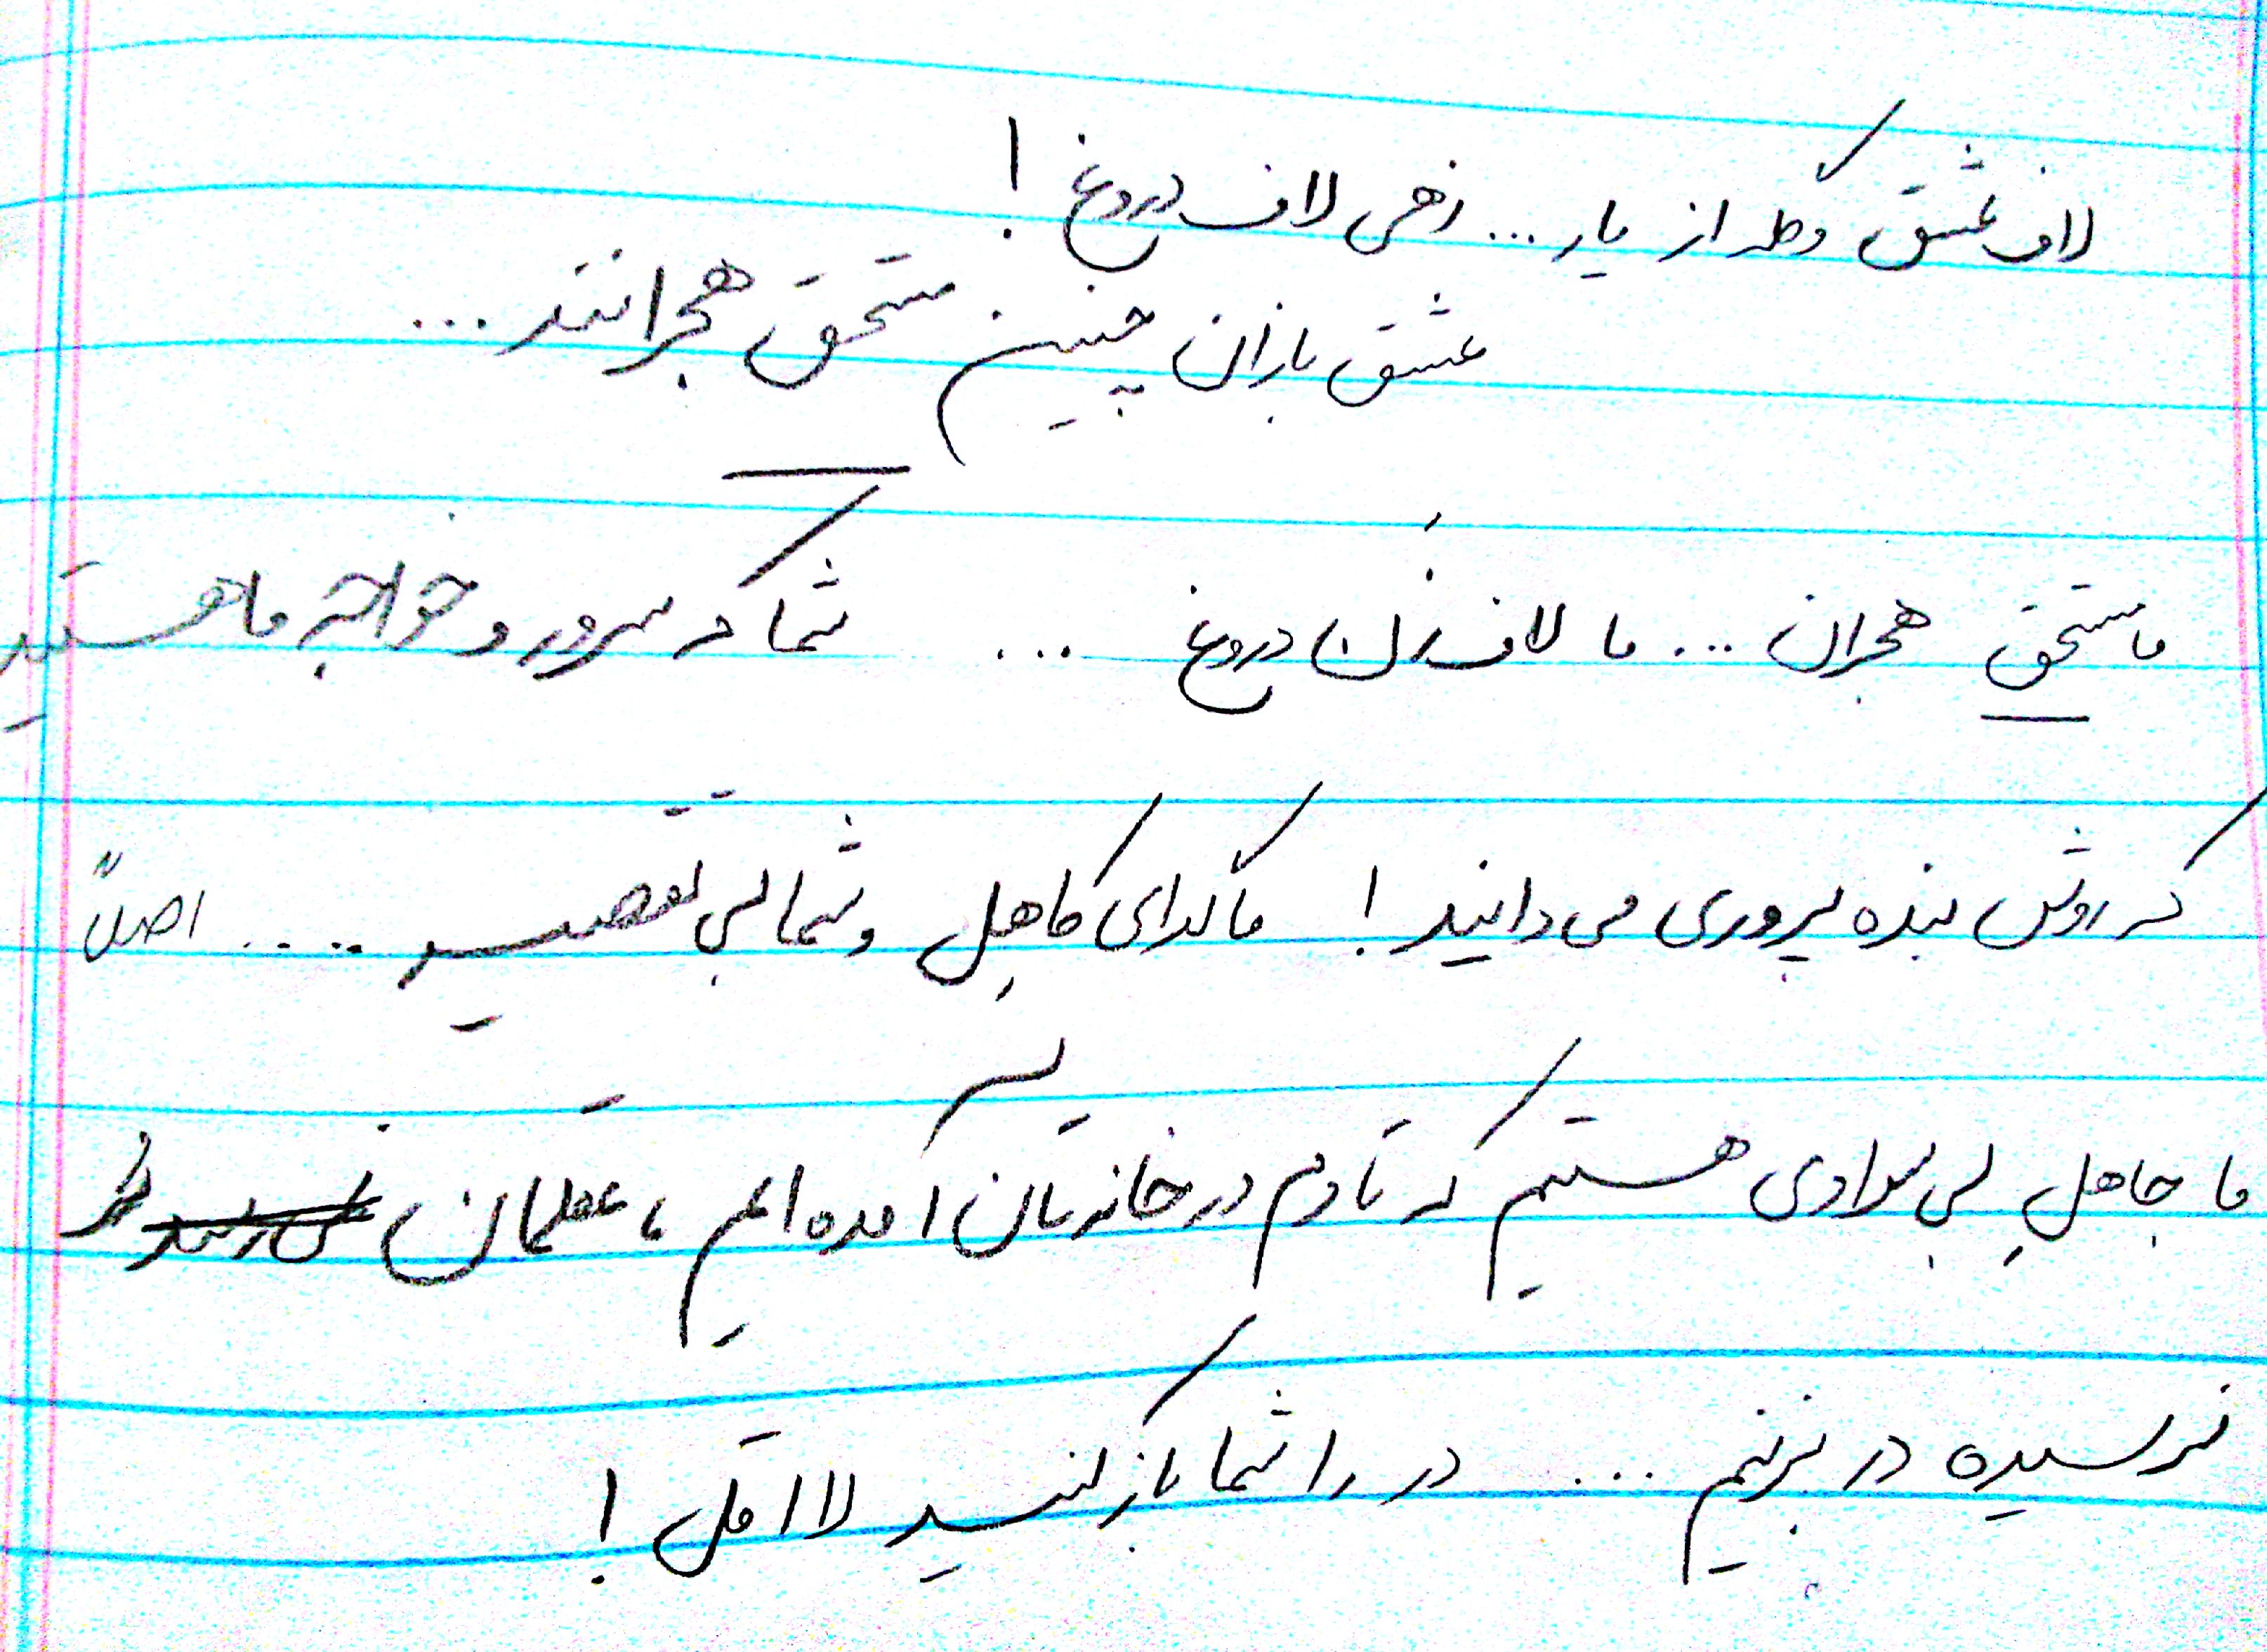 لاف عشق و گله از یار ... زهی لاف دروغ !
عشق بازان چنین مستحق هجرانند ...
ما مستحق هجران ... ما لاف زنان دروغ ... شما که سرور و خواجه ما هستید
که روش بنده پروری می دانید ! ما گدای کاهِل و شما بی تقصیر .... اصلاً
ما جاهلِ بی سوادی هستیم که تا دم در خانه تان آمده ایم ، عقلمان
نرسیده در بزنیم .... در را شما باز کنید لااقل !